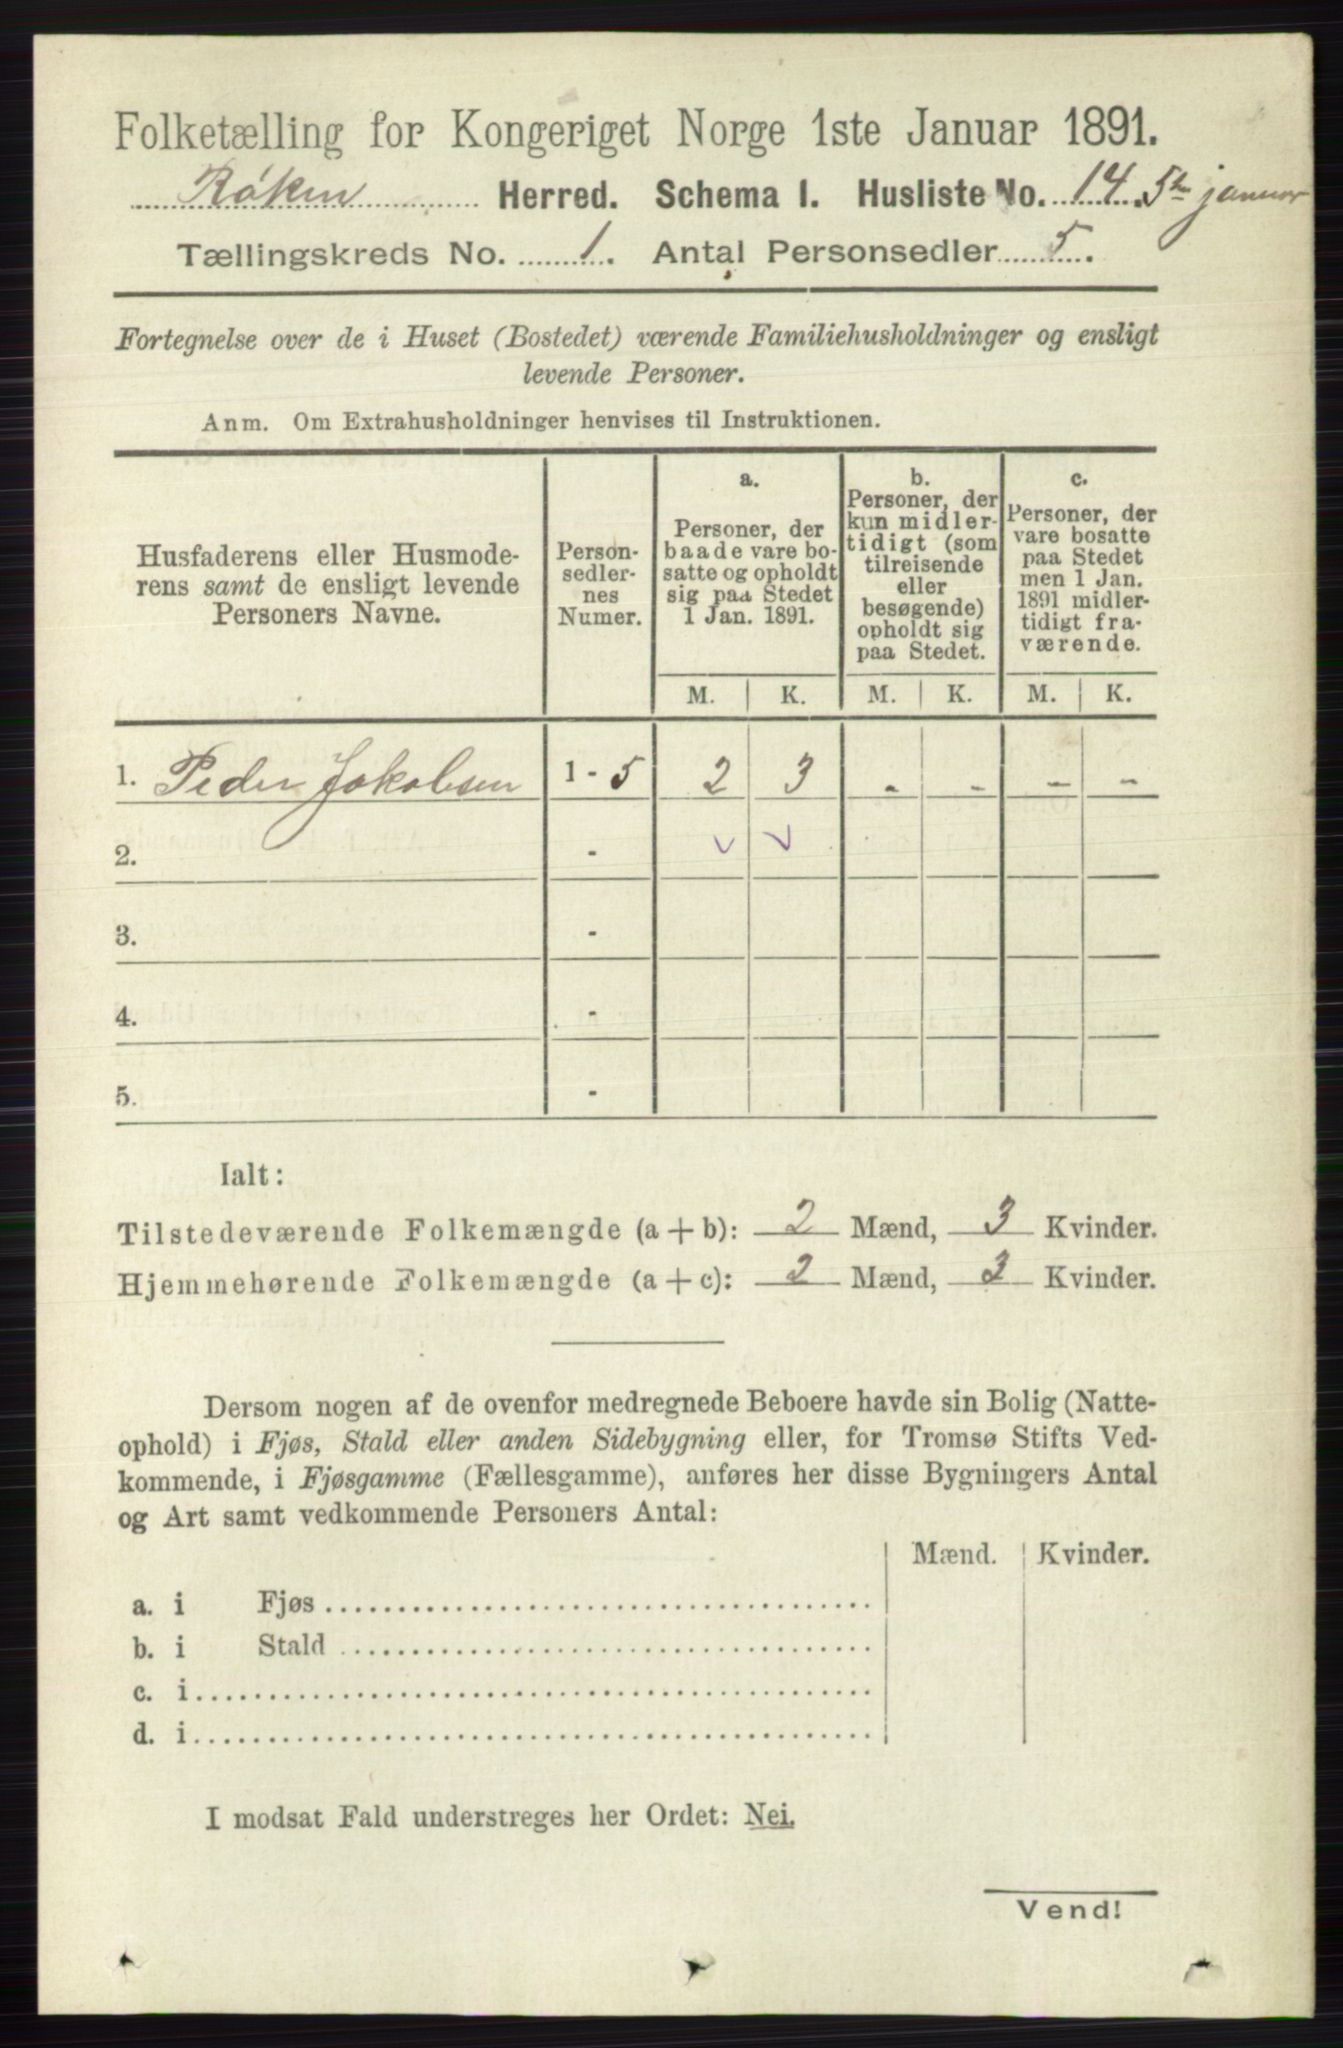 Folketælling for Kongeriget Norge 1ste Januar 1891.
Røken Herred. Schema I. Husliste No. 14. 5te januar
Tællingskreds No. 1. Antal Personsedler 5.
Fortegnelse over de i Huset (Bostedet) værende Familiehusholdninger og ensligt
levende Personer.
Anm. Om Extrahusholdninger henvises til Instruktionen.
Husfaderens eller Husmode-
rens samt de ensligt levende
Personers Navne.
Person-
sedler-
nes
Numer.
a.
Personer, der
baade vare bo-
satte og opholdt
sig paa Stedet
1 Jan. 1891.
b.
Personer, der
kun midler-
tidigt (som
tilreisende
eller
besøgende)
opholdt sig
paa Stedet.
c.
Personer, der
vare bosatte
paa Stedet
men 1 Jan.
1891 midler-
tidigt fra-
værende.
M. K. M. K. M. K.
1. Peder Jakobsen 1 - 5 2 3 - - - -
2. -
3. -
4. -
5. -
Ialt:
Tilstedeværende Folkemængde (a + b): 2 Mænd, 3 Kvinder.
Hjemmehørende Folkemængde (a + c): 2 Mænd, 3 Kvinder.
Dersom nogen af de ovenfor medregnede Beboere havde sin Bolig (Natte-
ophold) i Fjøs, Stald eller anden Sidebygning eller, for Tromsø Stifts Ved-
kommende, i Fjøsgamme (Fællesgamme), anføres her disse Bygningers Antal
og Art samt vedkommende Personers Antal:
Mænd. Kvinder.
a. i Fjøs
b. i Stald
c. i
d. i
I modsat Fald understreges her Ordet: Nei.
Vend!